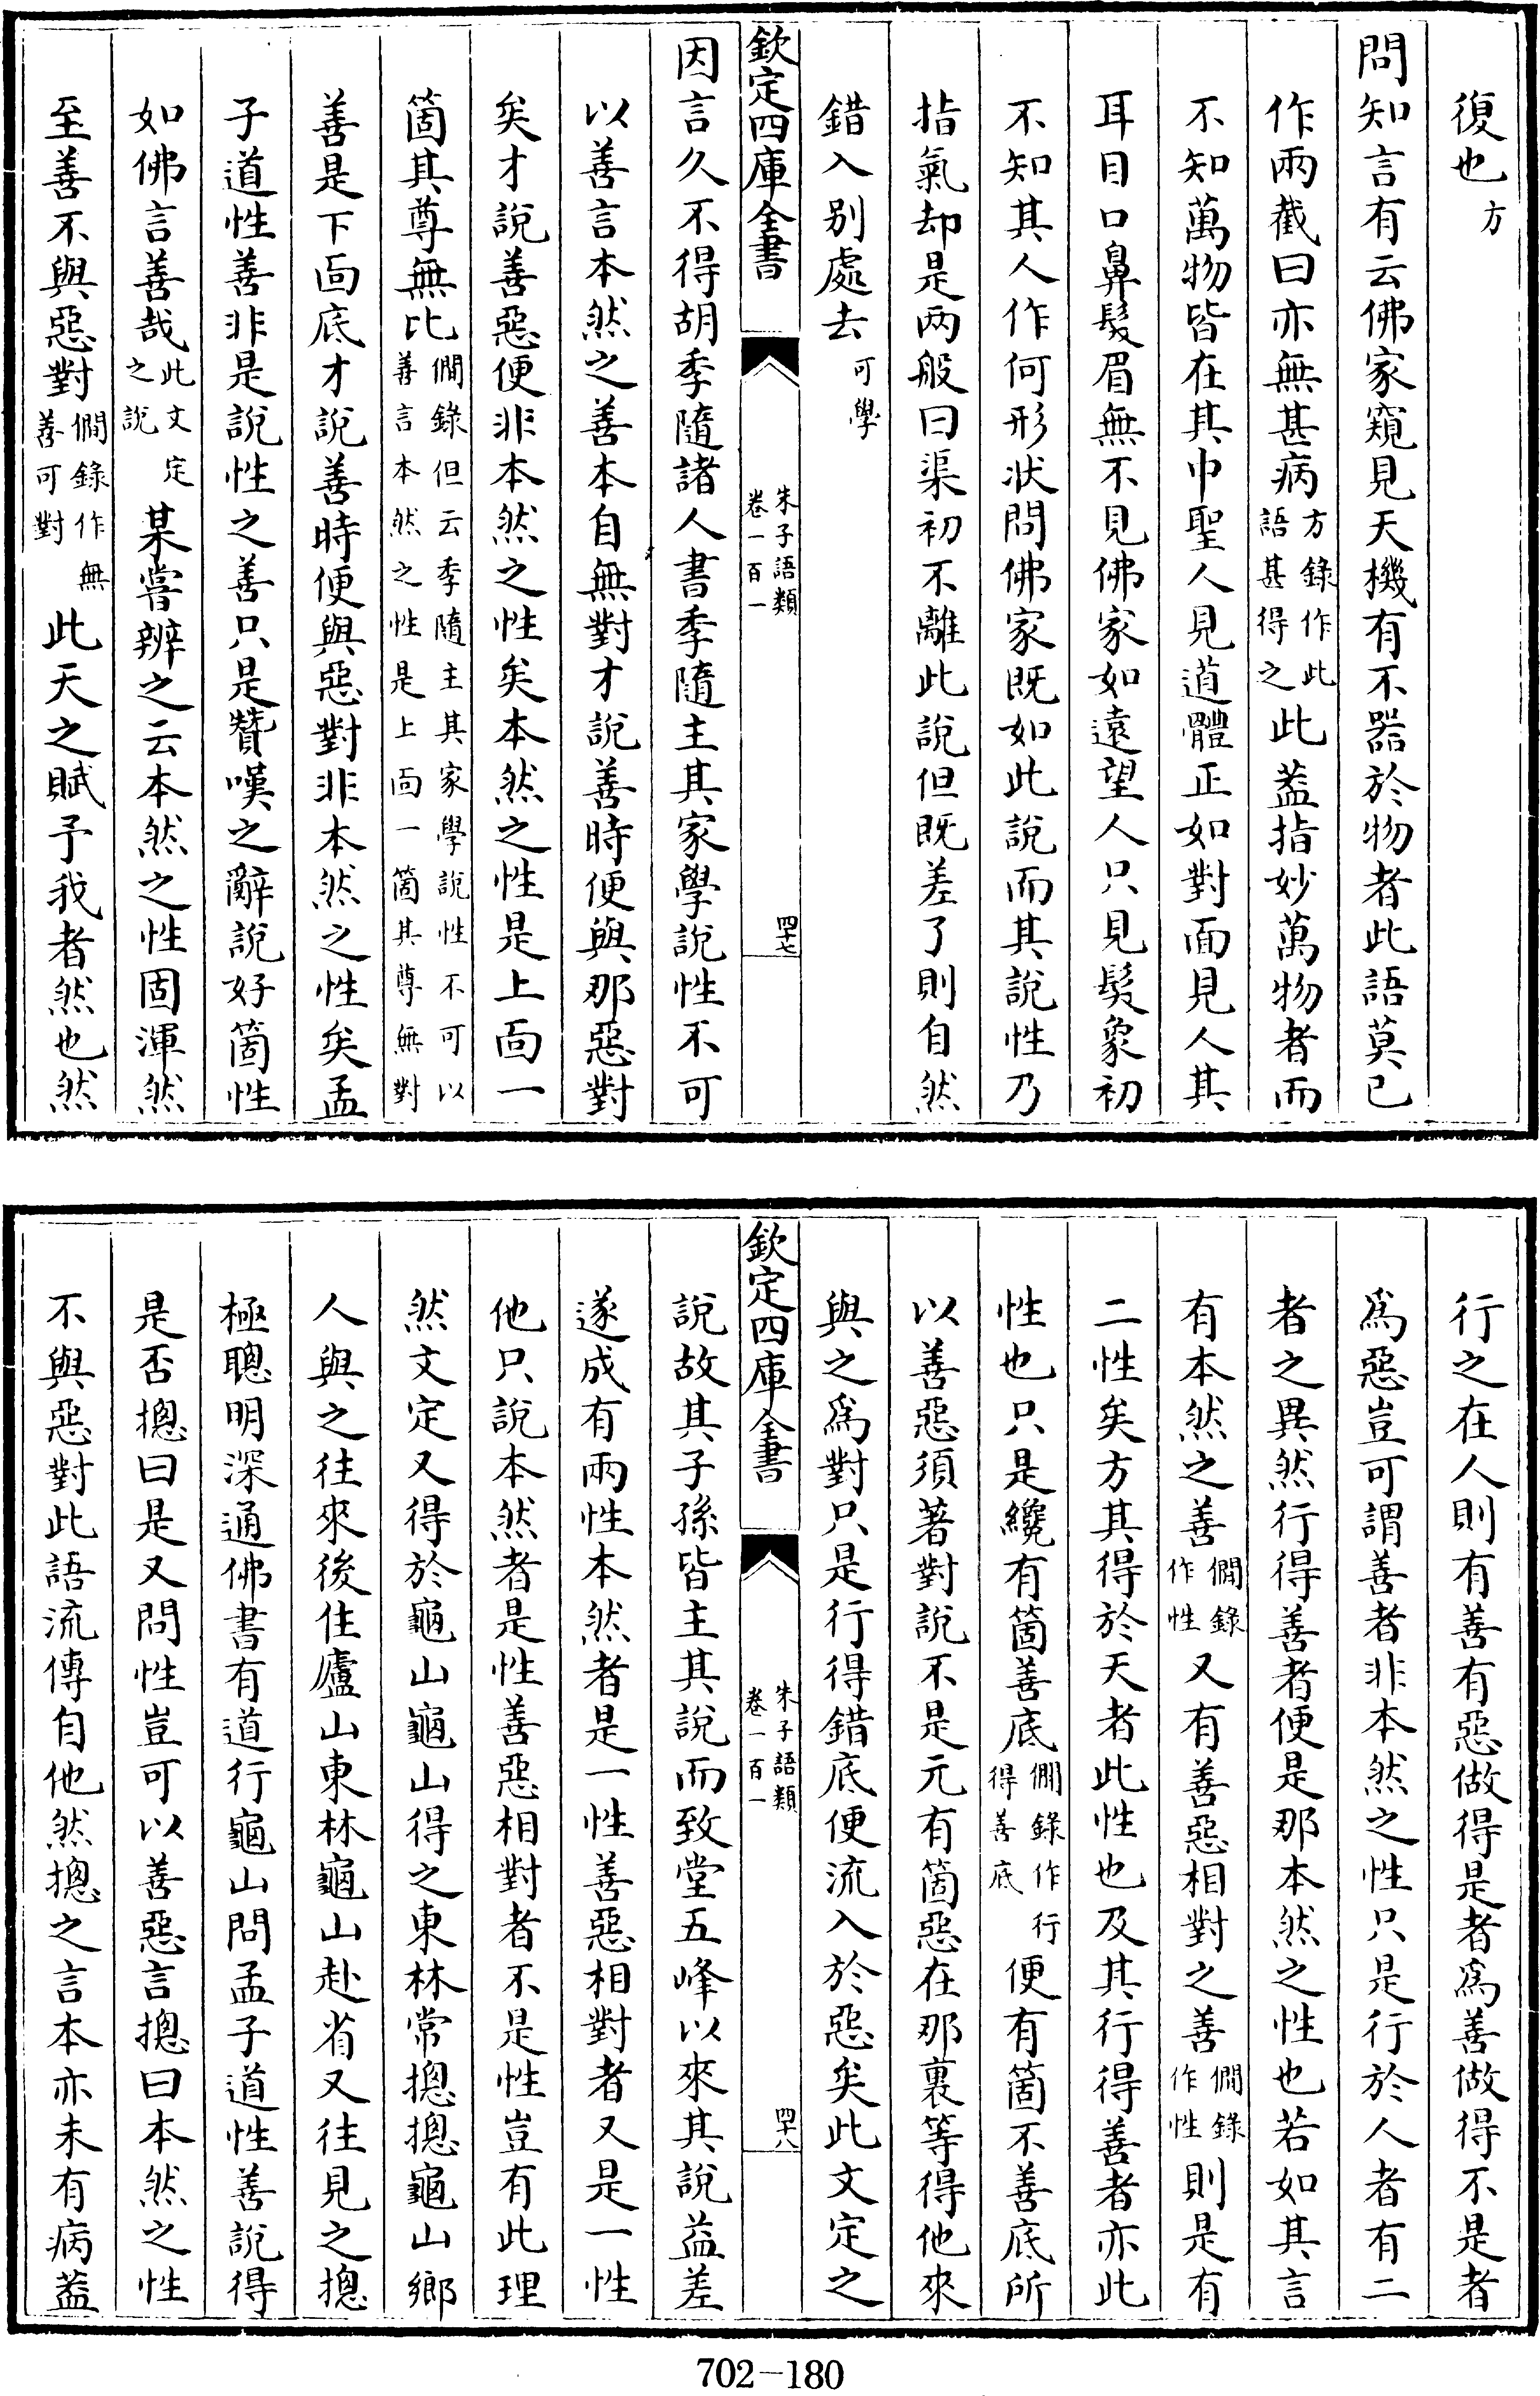 復也方
問知言有云佛家窺見天機有不器於物者此語莫已
作兩截曰亦無甚病方錄作此語甚得之此蓋指妙萬物者而
不知萬物皆在其中聖人見道體正如對面見人其
耳目口鼻髮眉無不見佛家如遠望人只見髣象初
不知其人作何形狀問佛家既如此說而其說性乃
指氣却是兩般曰渠初不離此說但既差了則自然
錯入別處去可學
欽定四庫全書
朱子語類
卷一百一
四十七
因言久不得胡季隨諸人書季隨主其家學說性不可
以善言本然之善本自無對才說善時便與那惡對
矣才說善惡便非本然之性矣本然之性是上面一
箇其尊無比僩錄但云季隨主其家學說性不可以善言本然之性是上面一箇其尊無對
善是下面底才說善時便與惡對非本然之性矣孟
子道性善非是說性之善只是贊嘆之辭說好箇性
如佛言善哉此文定之說某嘗辨之云本然之性固渾然
至善不與惡對僩錄作無善可對此天之賦予我者然也然
行之在人則有善有惡做得是者為善做得不是者
為惡豈可謂善者非本然之性只是行於人者有二
者之異然行得善者便是那本然之性也若如其言
有本然之善僩錄作性又有善惡相對之善僩錄作性則是有
二性矣方其得於天者此性也及其行得善者亦此
性也只是纔有箇善底僩錄作行得善底便有箇不善底所
以善惡須著對說不是元有箇惡在那裏等得他來
與之為對只是行得錯底便流入於惡矣此文定之
欽定四庫全書
朱子語類
卷一百一
四十八
說故其子孫皆主其說而致堂五峰以來其說益差
遂成有兩性本然者是一性善惡相對者又是一性
他只說本然者是性善惡相對者不是性豈有此理
然文定又得於龜山龜山得之東林常摠摠龜山鄉
人與之往來後住廬山東林龜山赴省又往見之摠
極聰明深通佛書有道行龜山問孟子道性善說得
是否摠曰是又問性豈可以善惡言摠曰本然之性
不與惡對此語流傳自他然摠之言本亦未有病蓋
702-180